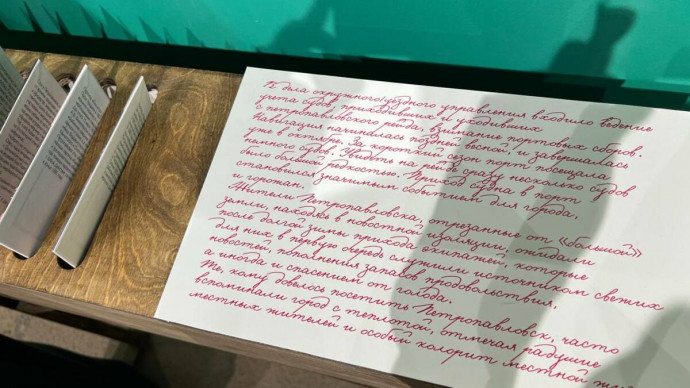 В дела окружного/уездного управления входило ведение
учета судов, приходивших и уходивших
с петропавловского рейда, взимание портовых сборов.
Навигация начиналась поздней весной, и завершалась
уже в октябре. За короткий сезон порт посещала
немного судов. Увидеть на рейде сразу несколько судов
было большой редкостью. Приход судна в порт
становился значимым событием для города,
и горожан.
Жители Петропавловска, отрезанные от «большой»
земли, находясь в новостной изоляции, ожидали
после долгой зимы прихода экипажей, которые
для них в первую очередь служили источником свежих
новостей, пополнения запасов продовольствия,
а иногда и спасением от голода.
Те, кому довелось посетить Петропавловск, часто
вспоминали город с теплотой, отмечая радушие
местных жителей и особый колорит местной